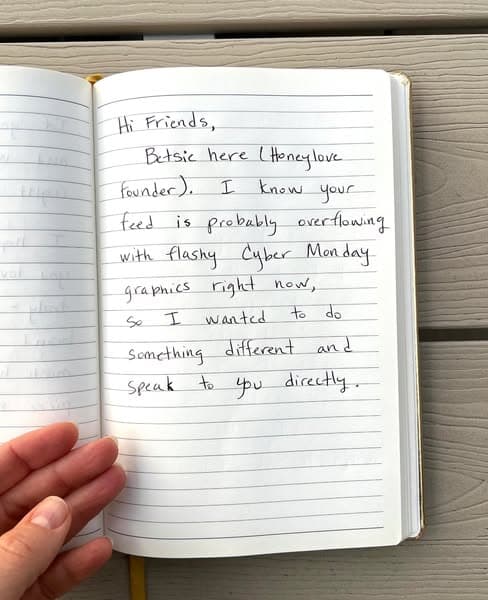 Hi Friends,
Betsie here (Honeylove
founder). I know your
feed is probably overflowing
with flashy Cyber Monday
graphics right now,
so I wanted to do
something different and
speak to you directly.